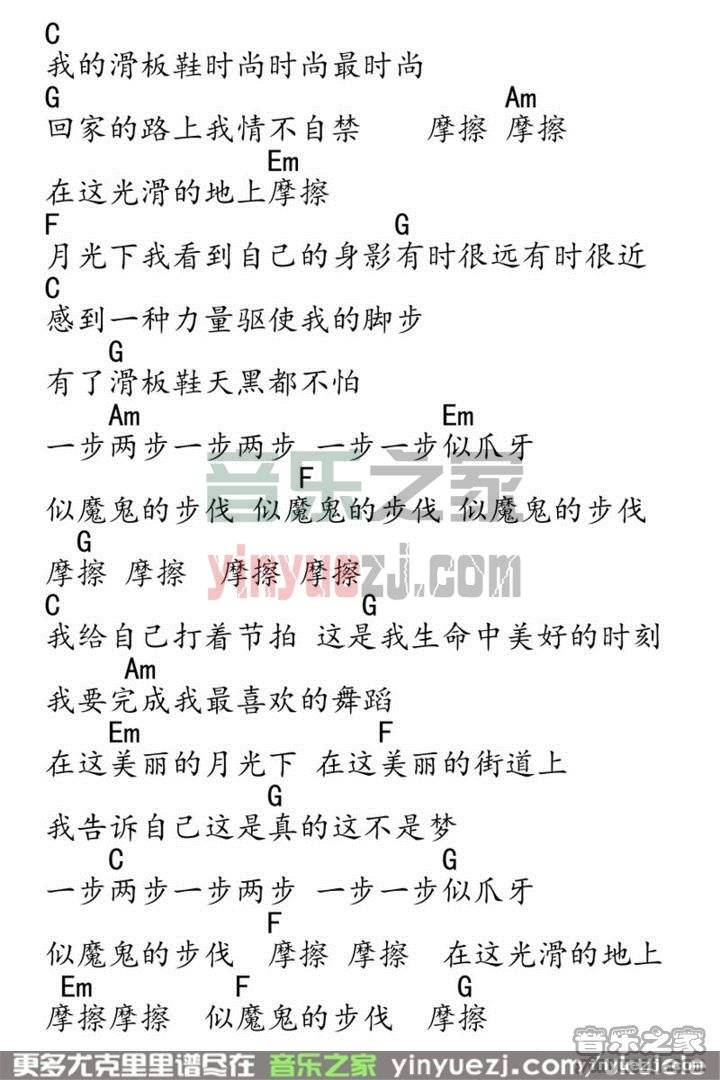 C
我的滑板鞋时尚时尚最时尚
G Am
回家的路上我情不自禁 摩擦 摩擦
Em
在这光滑的地上摩擦
F G
月光下我看到自己的身影有时很远有时很近
C
感到一种力量驱使我的脚步
G
有了滑板鞋天黑都不怕
Am Em
一步两步一步两步 一步一步似爪牙
F
似魔鬼的步伐 似魔鬼的步伐 似魔鬼的步伐
G
摩擦 摩擦 摩擦 摩擦
C G
我给自己打着节拍 这是我生命中美好的时刻
Am
我要完成我最喜欢的舞蹈
Em F
在这美丽的月光下 在这美丽的街道上
G
我告诉自己这是真的这不是梦
C G
一步两步一步两步 一步一步似爪牙
F
似魔鬼的步伐 摩擦 摩擦 在这光滑的地上
Em F G
摩擦摩擦 似魔鬼的步伐 摩擦
音乐之家
yinyuezj.com
更多尤克里里谱尽在 音乐之家 yinyuezj.com/ukulele
音乐之家
www.yinyuezj.com